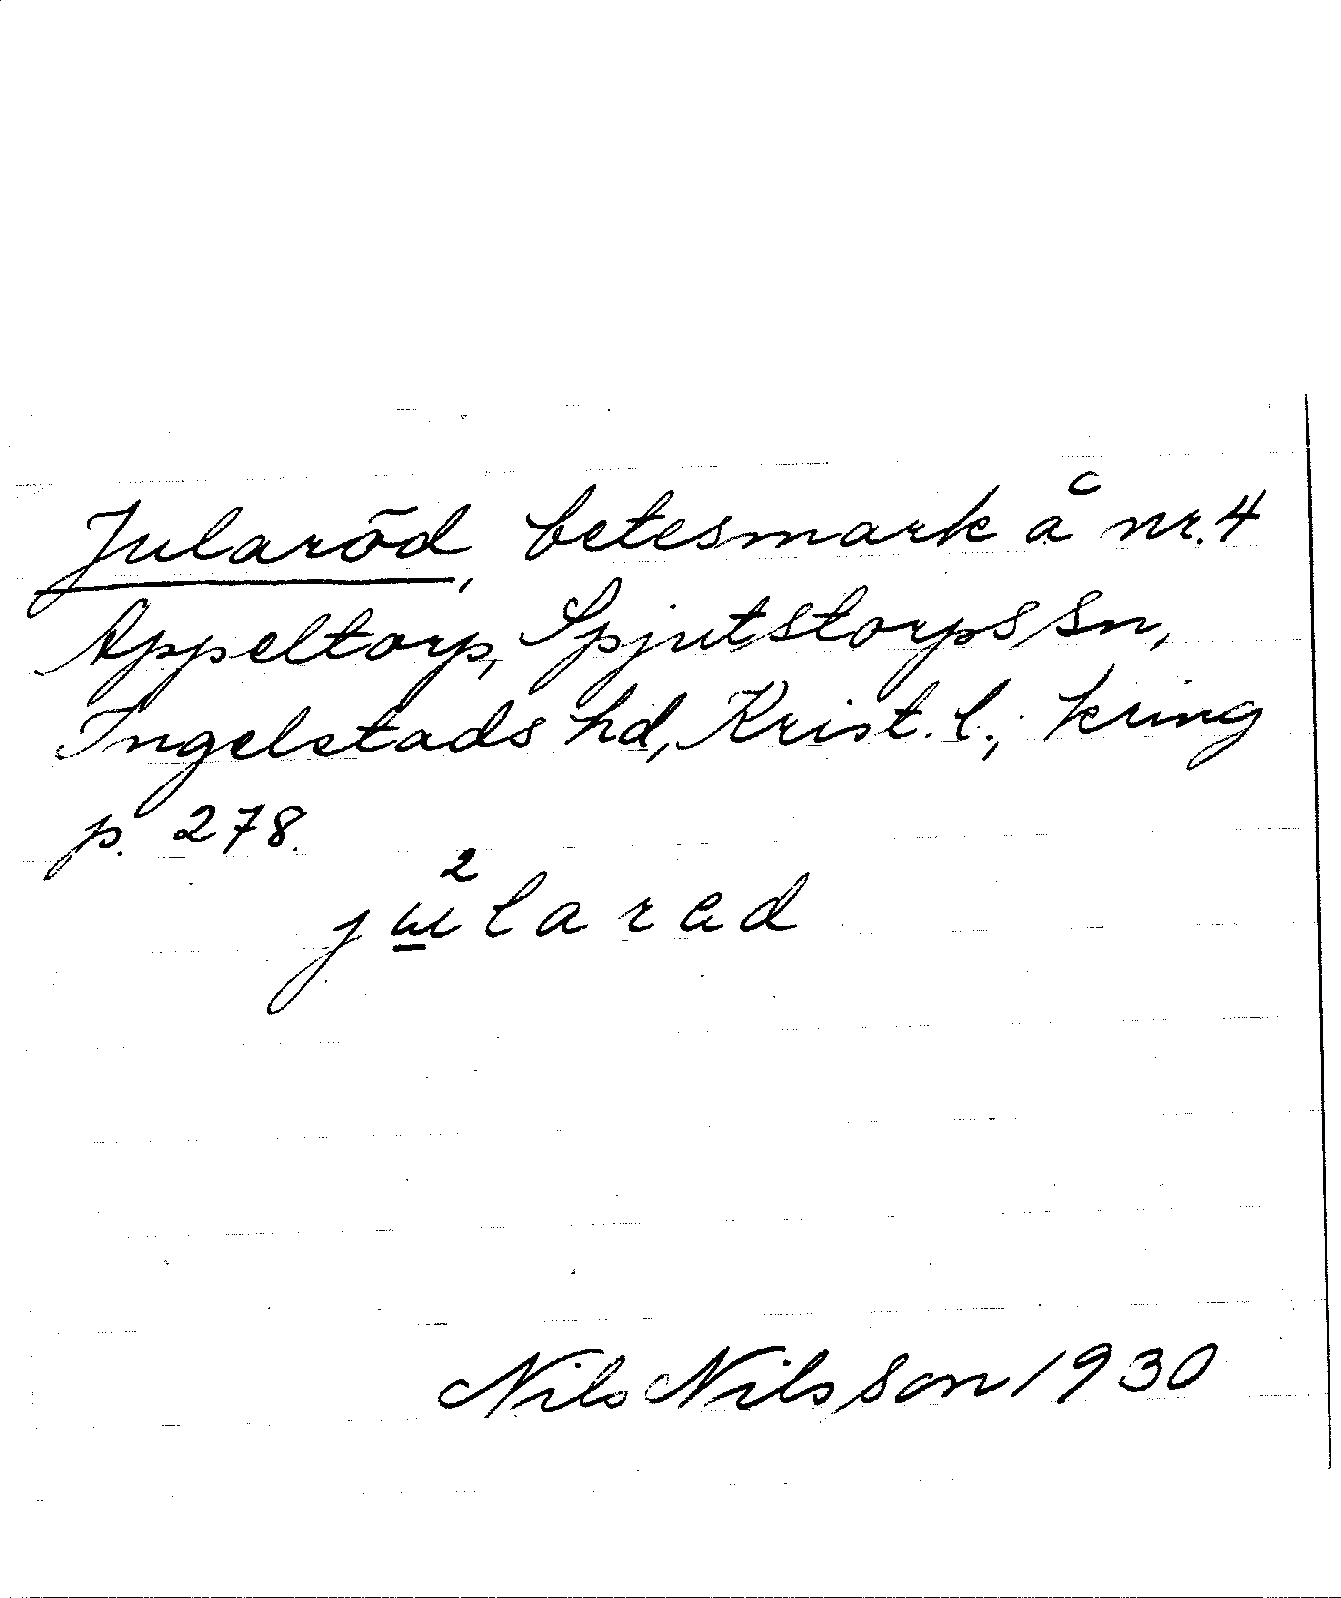 Jularöd, betesmark å nr. 4
Appeltorp, Spjutstorps sn,
Ingelstads hd, Krist. l.; kring
p. 278.
Nils Nilsson 1930